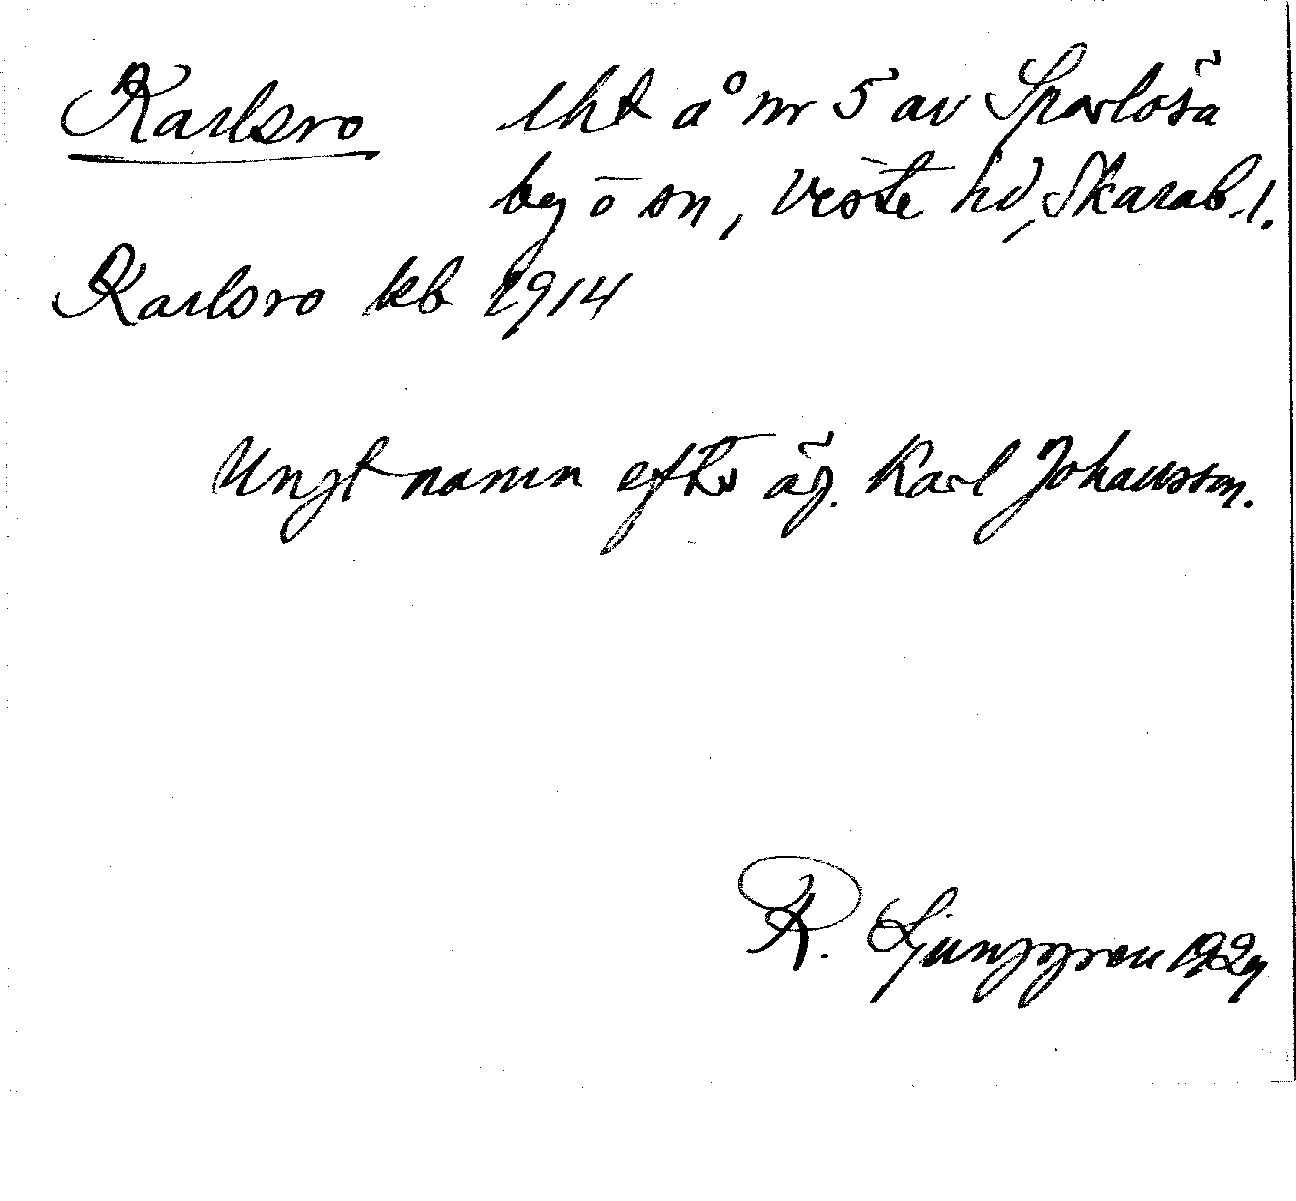 Karlsro lht å nr 5 av Sparlösa
by ō sn, Viste hd, Skarab. l.
Karlsro kb 1914
Ungt namn efter äg. Karl Johansson.
R. Ljunggren 1929